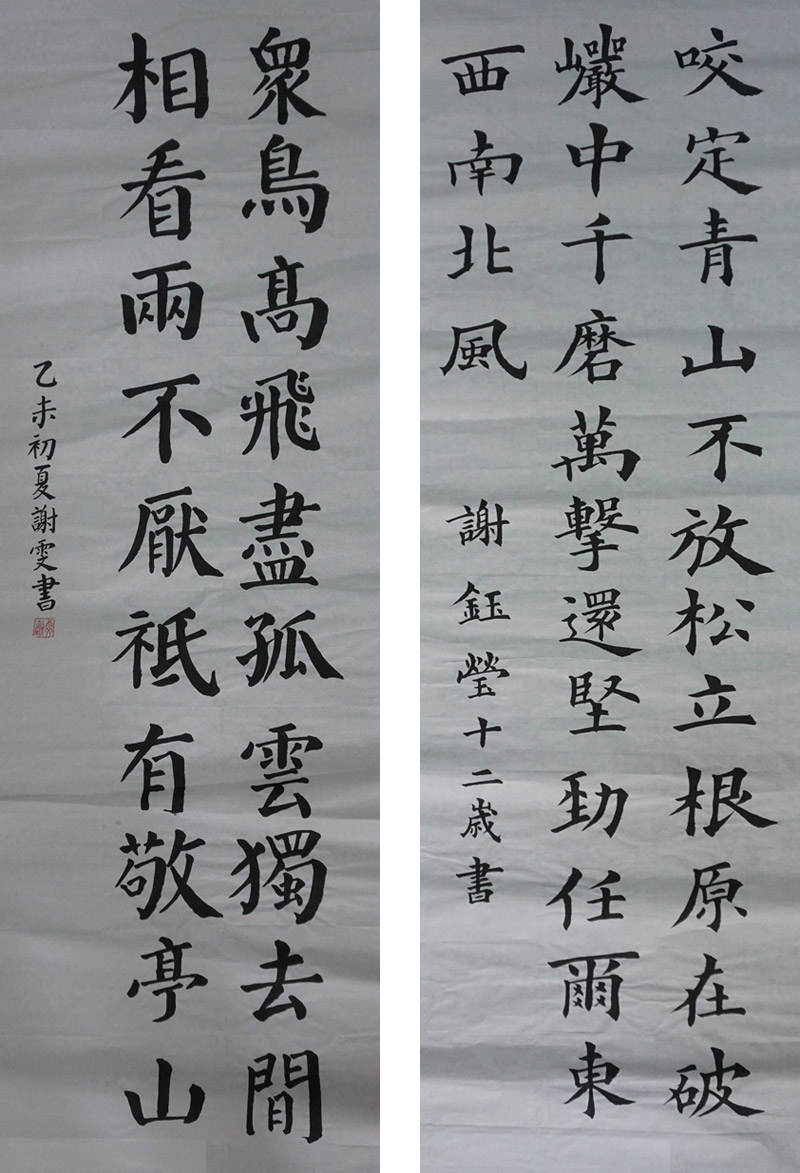 咬定青山不放松立根原在破
巗中千磨萬擊還堅勁任爾東
西南北風
謝鈺瑩十二歳書
衆鳥髙飛盡孤雲獨去間
相看兩不厭祗有敬亭山
乙未初夏謝雯書